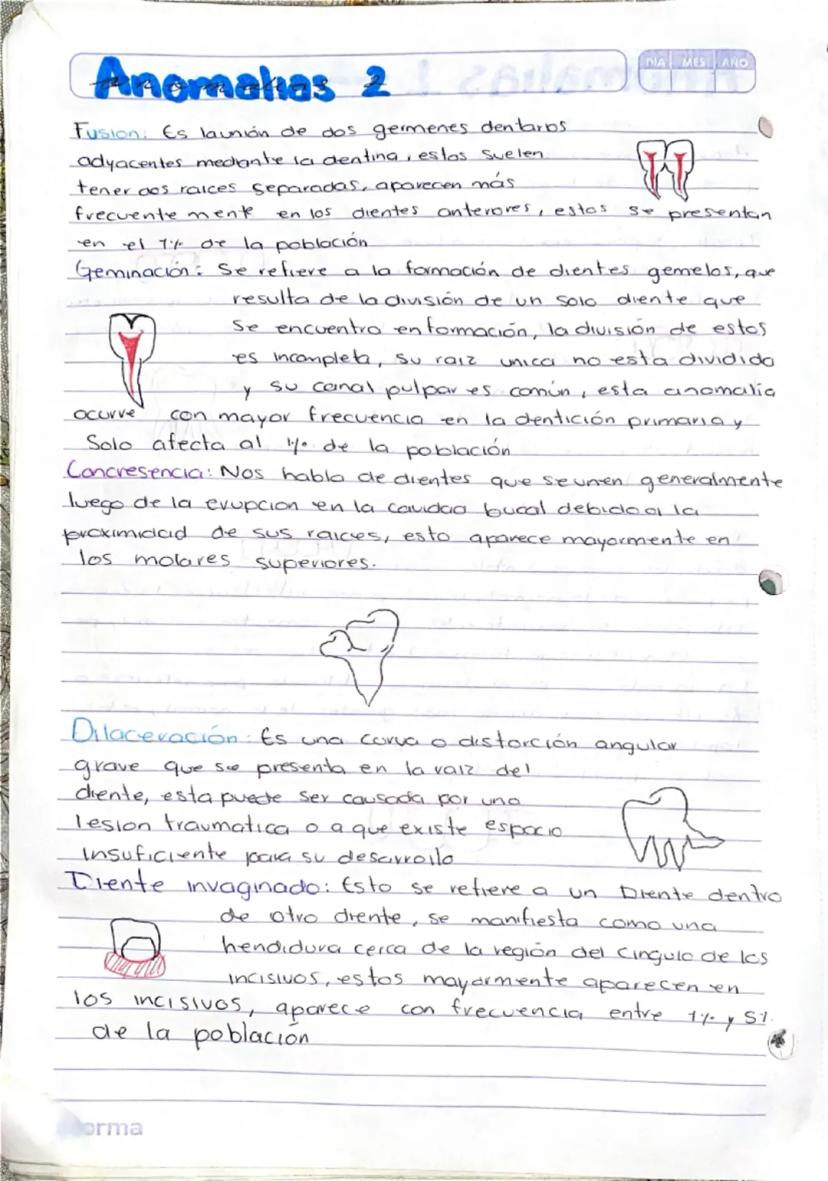 Anomalias 2
DIA MES AÑO
Fusion: Es la unión de dos germenes dentarios
adyacentes mediante la dentina, estos suelen
tener dos raices separadas, aparecen más
frecuentemente en los dientes anteriores, estos se presentan
en el 1% de la población
Geminación: Se refiere a la formación de dientes gemelos, que
resulta de la división de un solo diente que
se encuentra en formación, la división de estos
es incompleta, su raiz unica no esta dividida
y su canal pulpar es común, esta anomalia
ocurre con mayor frecuencia en la dentición primaria y
Solo afecta al 1% de la población
Concresencia: Nos habla de dientes que se unen generalmente
luego de la erupcion en la cavidad bucal debido a la
proximidad de sus raices, esto aparece mayormente en
los molares superiores.
Dilaceración: Es una curva o distorción angular
grave que se presenta en la raiz del
diente, esta puede ser causada por una
lesion traumatica o a que existe espacio
insuficiente para su desarrollo
Diente invaginado: Esto se refiere a un Diente dentro
de otro diente, se manifiesta como una
hendidura cerca de la región del cingulo de los
incisivos, estos mayormente aparecen en
los incisivos, aparece con frecuencia entre 1% y 5%
de la población
norma